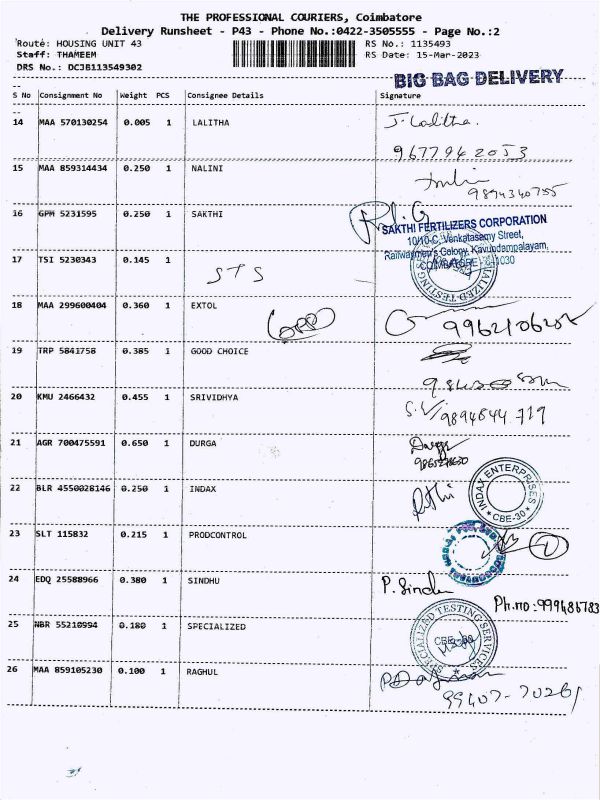 THE PROFESSIONAL COURIERS, Coimbatore
Delivery Runsheet - P43 - Phone No.:0422-3505555 - Page No.:2
Route: HOUSING UNIT 43 RS No.: 1135493
Staff: THAMEEM RS Date: 15-Mar-2023
DRS No.: DCJB113549302
BIG BAG DELIVERY
S No Consignment No Weight PCS Consignee Details Signature
14 MAA 570130254 0.005 1 LALITHA J. Lalitha.
9677942053
15 MAA 859314434 0.250 1 NALINI
9894340755
16 GPM 5231595 0.250 1 SAKTHI
SAKTHI FERTILIZERS CORPORATION
10/10-C, Venkatasamy Street,
Railwaymen's Colony, Kavundampalayam,
COIMBATORE - 641030
17 TSI 5230343 0.145 1
STS
18 MAA 299600404 0.360 1 EXTOL
19 TRP 5841758 0.385 1 GOOD CHOICE
20 KMU 2466432 0.455 1 SRIVIDHYA
9894844719
21 AGR 700475591 0.650 1 DURGA Durga
22 BLR 4550028146 0.250 1 INDAX
INDAX ENTERPRISES
CBE-30
23 SLT 115832 0.215 1 PRODCONTROL
24 EDQ 25588966 0.380 1 SINDHU P. Sindhu
Ph.no:
25 NBR 55210994 0.180 1 SPECIALIZED
SPECIALIZED TESTING SERVICES
CBE-30
26 MAA 859105230 0.100 1 RAGHUL
99407-70261